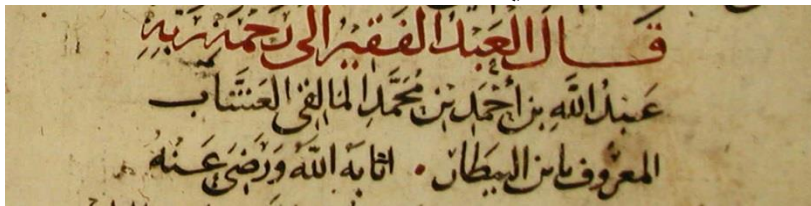 قال العبد الفقير الى رحمة ربه
عبد الله بن أحمد بن محمد المالقى العشاب
المعروف بابن البيطار . اثابه الله ورضى عنه